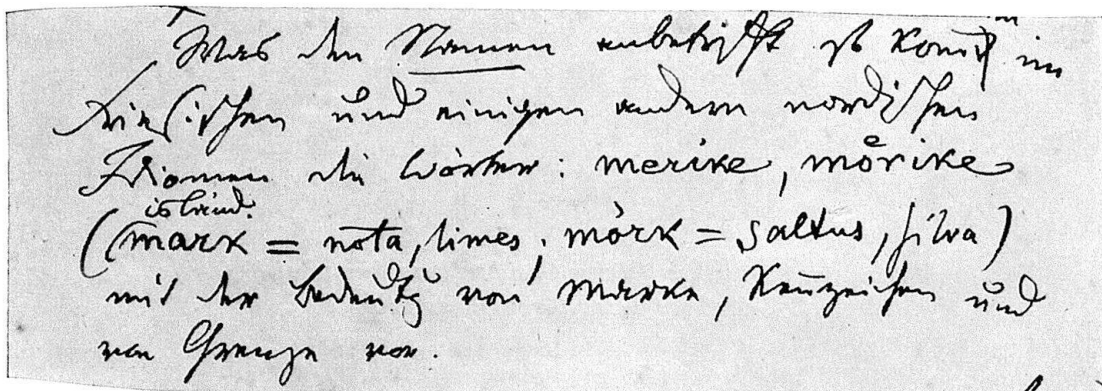 Was den Namen anbetrifft so komt im
Friesischen und einigen andern nordischen
Idiomen die Wörter: merike, mörike
(isländ. mark = nota, limes; mörk = saltus, silva)
mit der Bedeutg von Marke, Kennzeichen und
von Grenze vor.